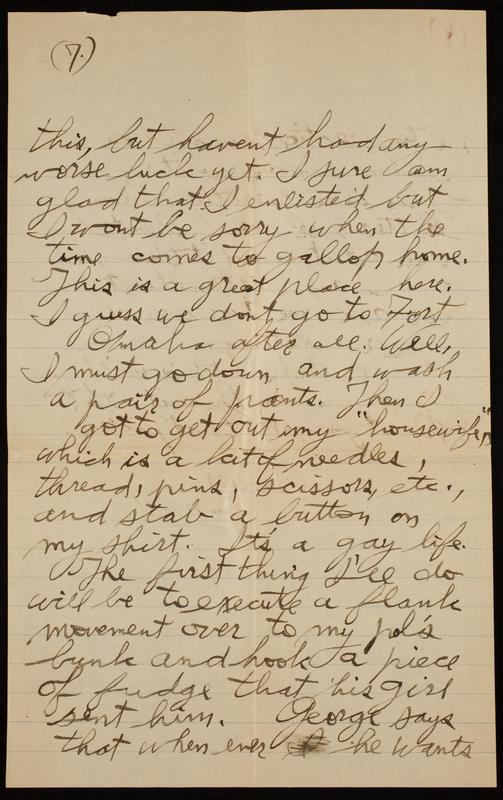 (7.)
this, but havent had any
worse luck yet. I sure am
glad that I enlisted but
I wont be sorry when the
time comes to gallop home.
This is a great place here.
I guess we don't go to Fort
Omaha after all. Well,
I must go down and wash
a pair of pants. Then I
got to get out my "housewife,"
which is a kit of needles,
thread, pins, scissors, etc.,
and stab a button on
my shirt. It's a gay life.
The first thing I'll do
will be to execute a flank
movement over to my pal's
bunk and hook a piece
of fudge that his girl
sent him. George says
that when ever he wants